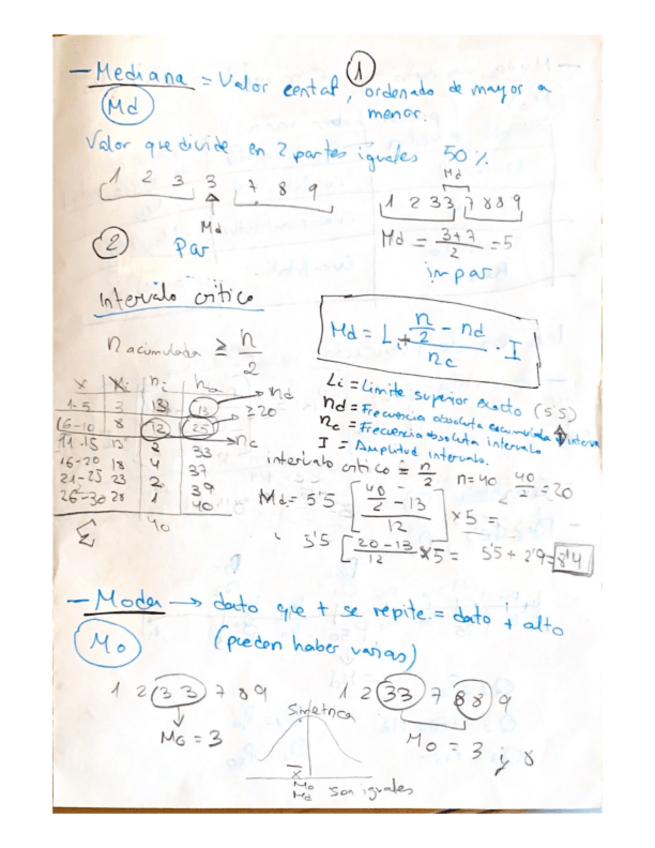 ①
- Mediana = Valor cental, ordenado de mayor a
Md menor.
Valor que divide en 2 partes iguales 50 %
1 2 3 3 7 8 9
Md
Md
1 2 3 3 7 8 8 9
Md = 3+7/2 = 5
② Par
impar
Intervalo critico
n acumulada ≥ n/2
Md = Li + n/2 - nd / nc · I
x Xi ni na
1-5 3 13 13 nd
6-10 8 12 25 ≥20
nc
11-15 13 2 33
16-20 18 4 37
21-25 23 2 39
26-30 28 1 40
Σ 40
Li = Limite superior exacto (5'5)
nd = Frecuencia absoluta acumulada
nc = Frecuencia absoluta intervalo
I = Amplitud intervalo.
intervalo critico = n/2 n=40 40/2 = 20
Md = 5'5 [40/2 - 13 / 12] x5 =
5'5 [20-13 / 12 x5 = 5'5 + 2'9 = 8'4
- Moda → dato que + se repite = dato + alto
Mo (pueden haber varias)
1 2 3 3 7 8 9
Mo = 3
1 2 33 7 88 9
Mo = 3 y 8
Simetrica
x̄
Mo
Md son iguales